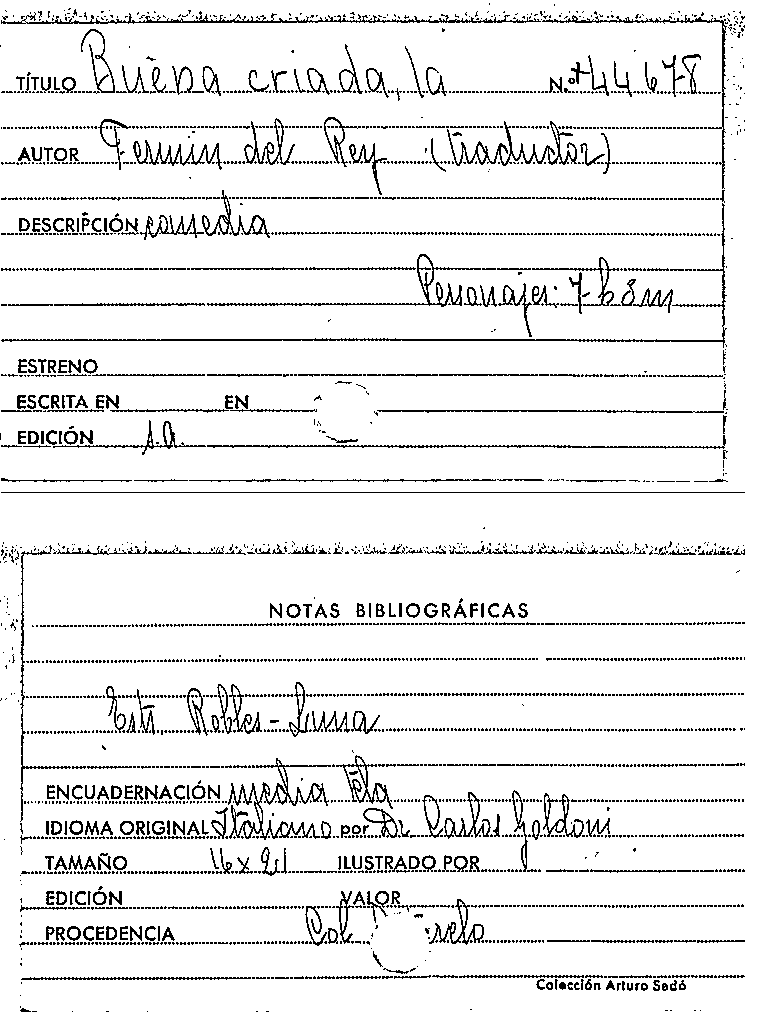 TÍTULO Buena criada, la N.º 44678
AUTOR Fermin del Rey (traductor)
DESCRIPCIÓN comedia
Personajes: 7 h 3 m
ESTRENO
ESCRITA EN EN
EDICIÓN s.a.
NOTAS BIBLIOGRÁFICAS
Estr. Robles-Luna
ENCUADERNACIÓN media tela
IDIOMA ORIGINAL Italiano por Dr Carlos Goldoni
TAMAÑO 16 x 21 ILUSTRADO POR
EDICIÓN VALOR
PROCEDENCIA Col
Colección Arturo Sedó